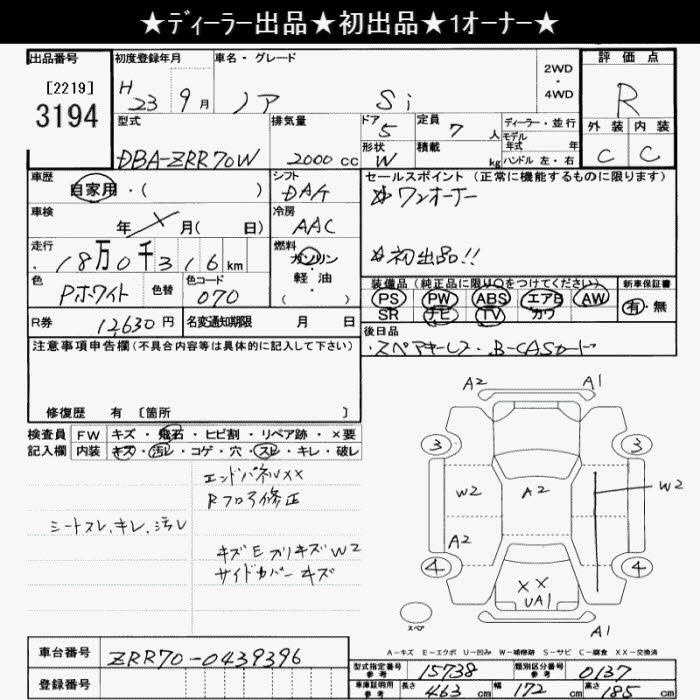 ★ディーラー出品★初出品★1オーナー★
出品番号
[2219]
3194
初度登録年月
H 23 9月
車名・グレード
ノア Si
2WD
・
4WD
評価点
R
外装 内装
C C
型式
DBA-ZRR70W
排気量
2000 cc
ドア
5
形状
W
定員
7 人
積載
kg
ディーラー・並行
モデル年式 年
ハンドル 左・右
車歴
自家用・( )
シフト
DAA
セールスポイント (正常に機能するものに限ります)
☆ワンオーナー
☆初出品!!
車検
年 月( 日)
冷房
AAC
走行
18万0千316km
燃料
ガソリン
・
軽油
( )
色
Pホワイト
色替
色コード
070
装備品 (純正品に限り○をつけてください)
PS PW ABS エアB AW
SR ナビ TV カワ
新車保証書
有・無
R券
12630円
名変通知期限 月 日
後日品
・スペアキーレス・B-CASカード
注意事項申告欄 (不具合内容等は具体的に記入して下さい)
修復歴 有 〔箇所 〕
検査員記入欄
FW キズ・飛石・ヒビ割・リペア跡・×要
内装 キズ・汚レ・コゲ・穴・スレ・キレ・破レ
エンドパネルXX
Rフロア修正
シートスレ、キレ、汚レ
キズE カリキズW2
サイドカバーキズ
A2 A1
3 3
W2 A2 W2
A2
4 4
XX
UA1
スペア
A1
A-キズ E-エクボ U-凹み W-補修跡 S-サビ C-腐食 XX-交換済
車台番号
ZRR70-0439396
登録番号
型式指定番号 参考
15738
類別区分番号 参考
0137
車庫証明用 参考
長さ 463 cm 幅 172 cm 高さ 185 cm